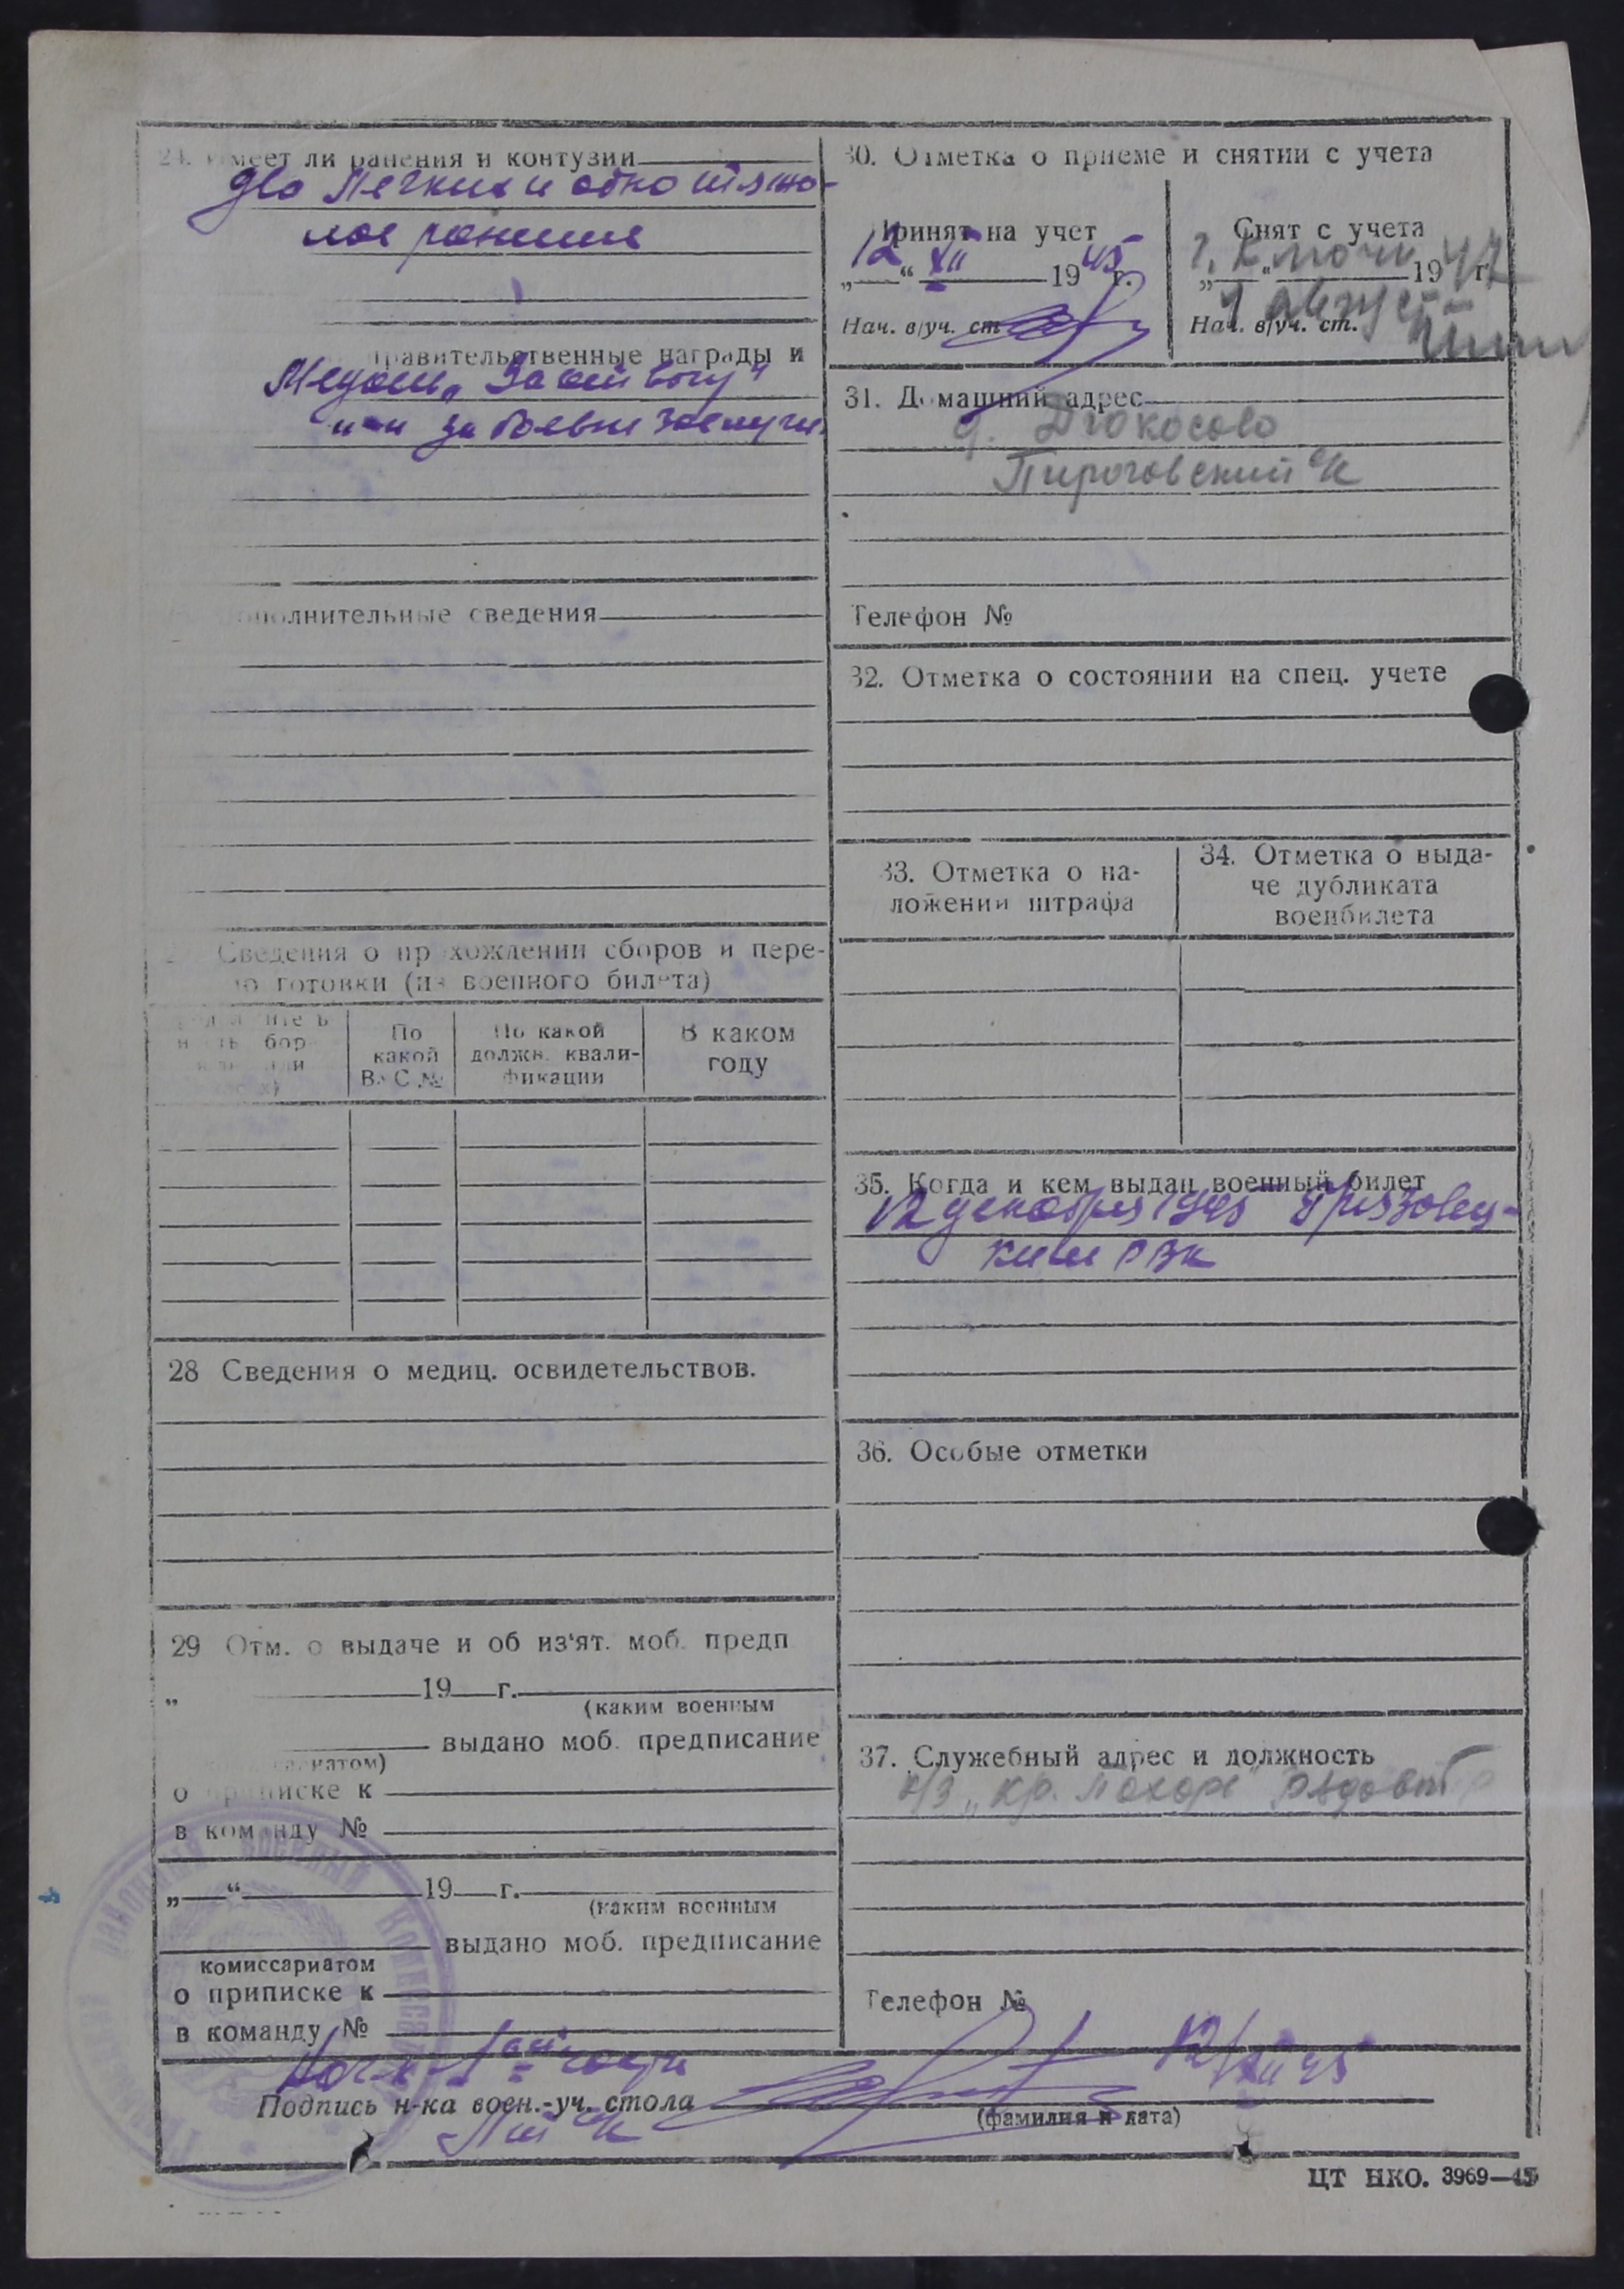 24. Имеет ли ранения и контузии
Два Легких и одно тяжо-
лое ранение
правительственные награды и
Медаль „За отвагу"
и за боевые заслуги
дополнительные сведения
Сведения о прохождении сборов и пере-
готовки (из военного билета)
По какой В.С.№
По какой должн. квали-фикации
В каком году
28 Сведения о медиц. освидетельствов.
29 Отм. о выдаче и об из'ят. моб. предп
„ 19 г.
(каким военным
выдано моб. предписание
о приписке к
в команду №
„ “ 19 г.
(каким военным
выдано моб. предписание
комиссариатом
о приписке к
в команду №
30. Отметка о приеме и снятии с учета
Принят на учет
12 “ XII 1945 г.
Нач. в/уч. ст
Снят с учета
„ “ 1947 г.
1 август
Нач. в/уч. ст.
31. Домашний адрес
д. Дюкосово
Пироговский с/с
Телефон №
32. Отметка о состоянии на спец. учете
33. Отметка о на-
ложении штрафа
34. Отметка о выда-
че дубликата
военбилета
35. Когда и кем выдан военный билет
12 декабря 1945 Грязовец-
ким РВК
36. Особые отметки
37. Служебный адрес и должность
к/з „Кр. Пахарь" рядовой
Телефон №
12/XII 45
Подпись н-ка воен.-уч. стола
(фамилия и дата)
ЦТ НКО. 3969—45